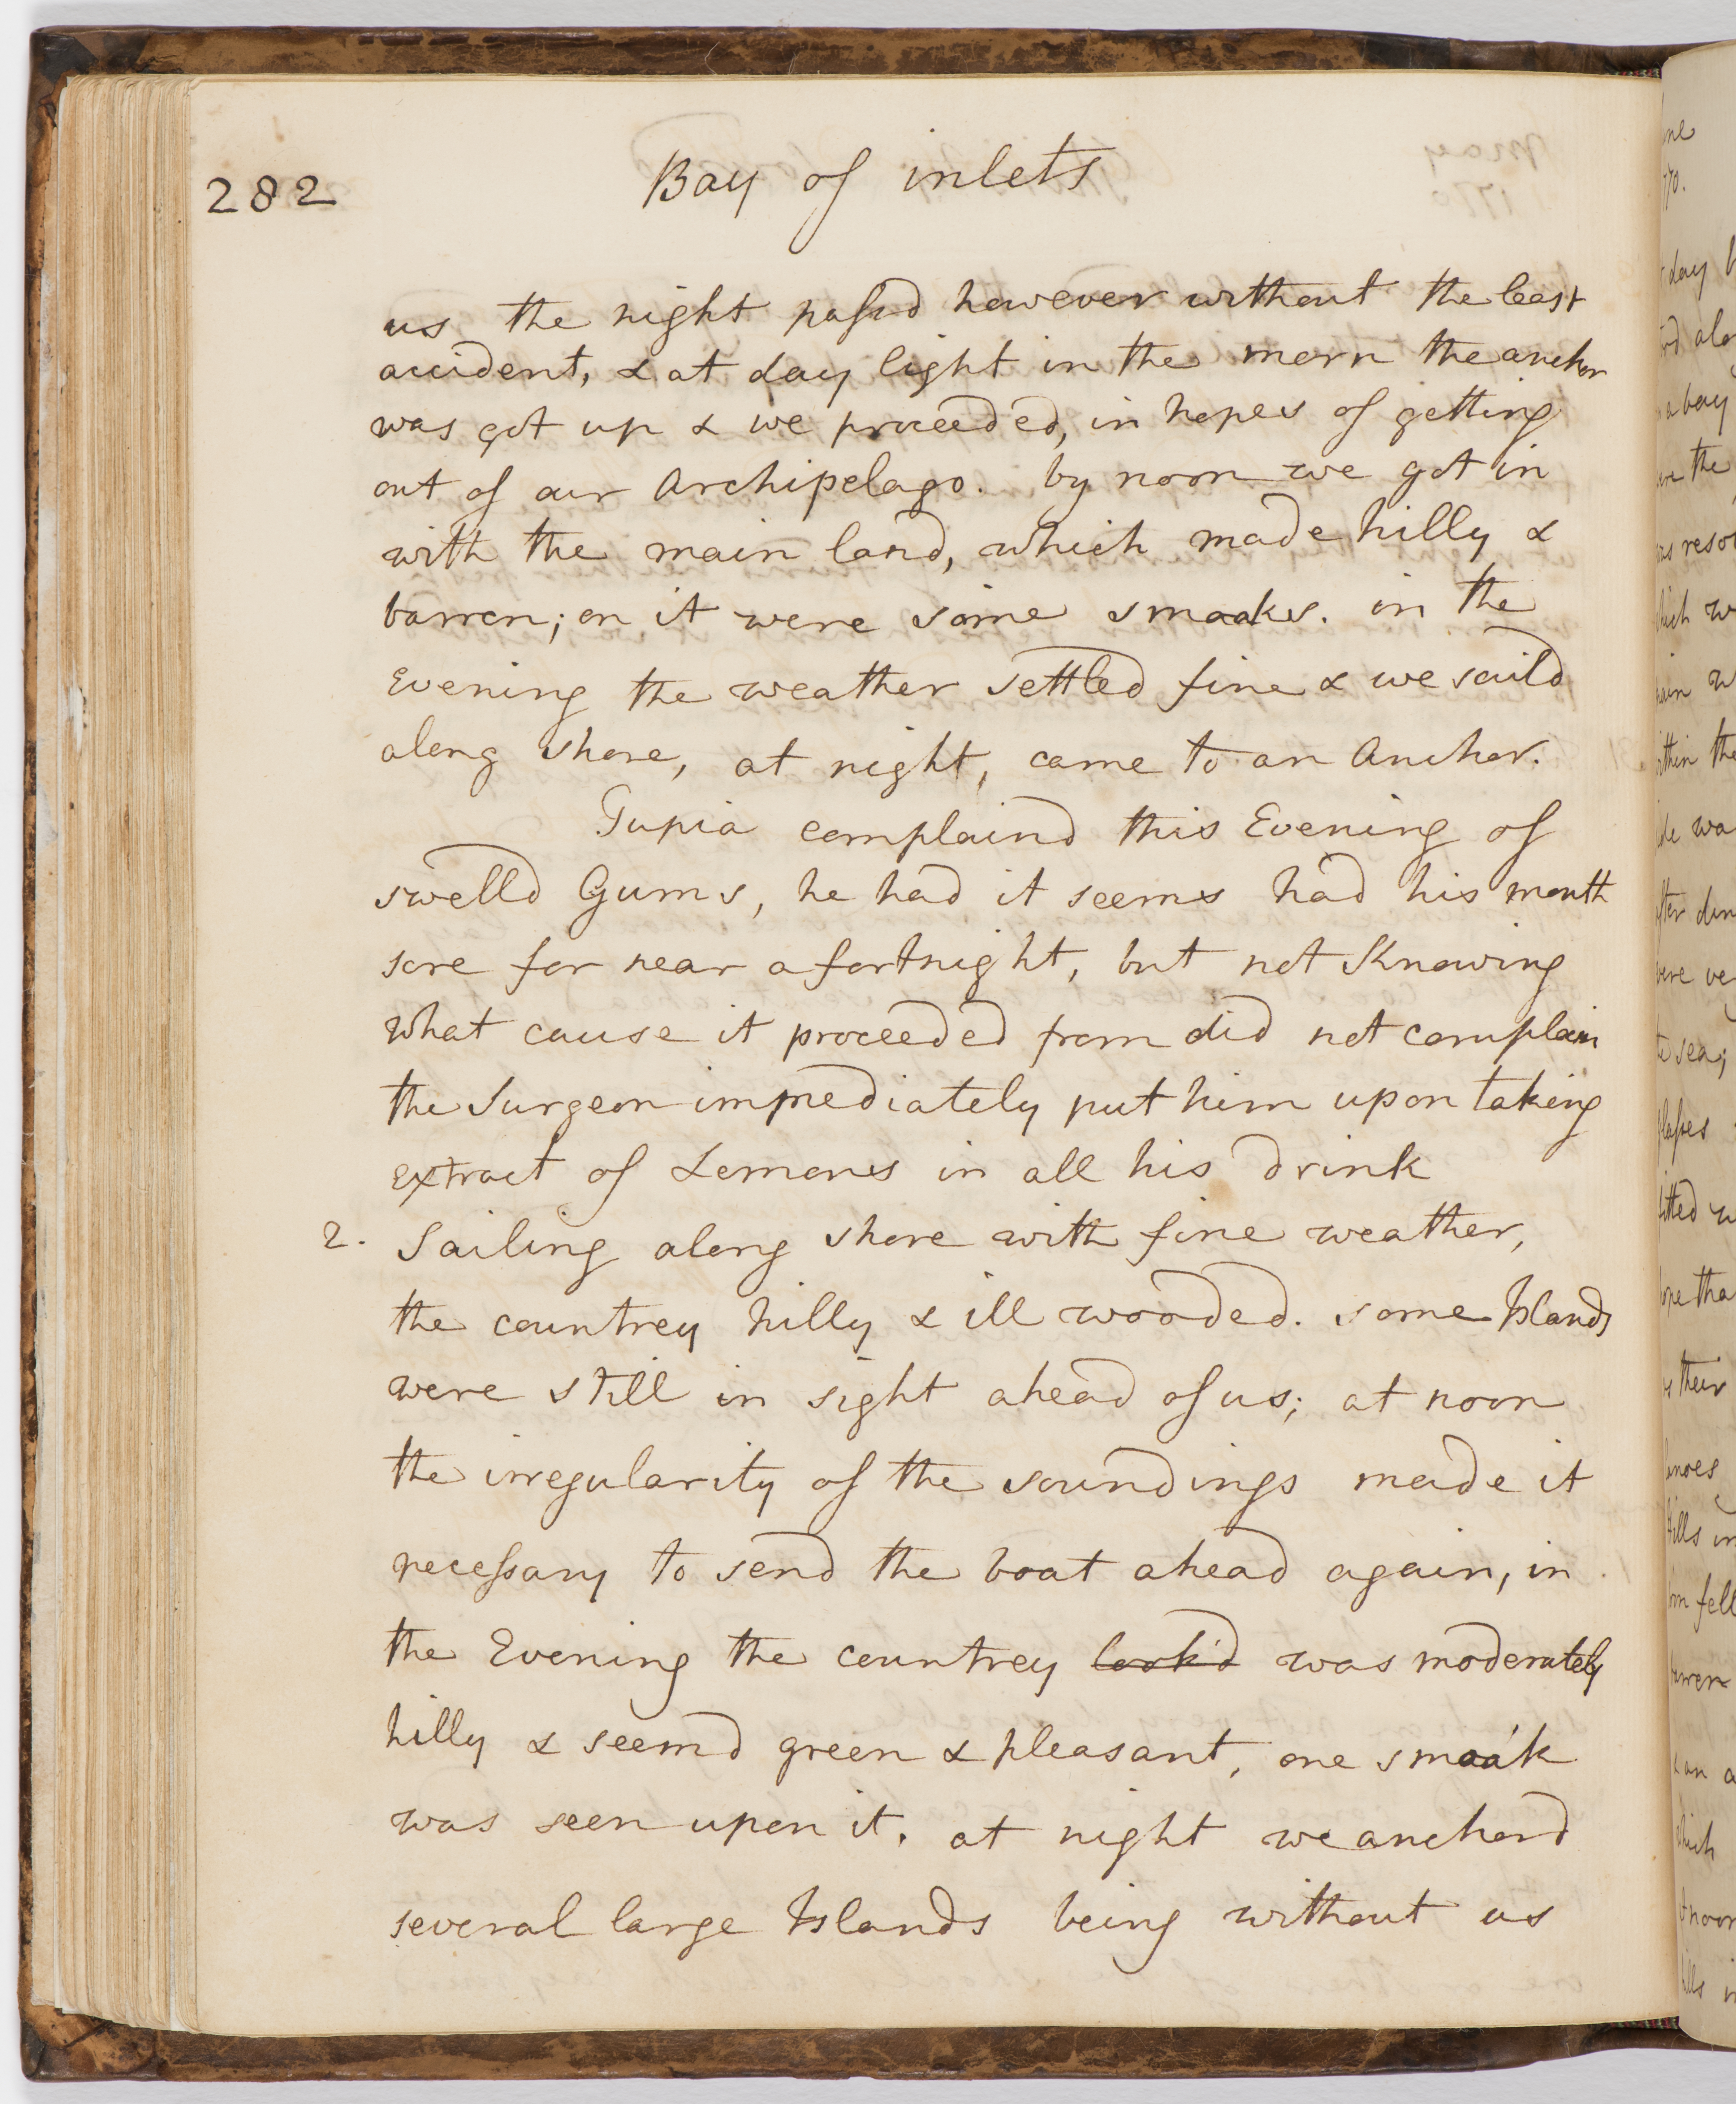 282
Bay of inlets
us the night passd however without the least
accident, & at day light in the morn the anchor
was got up & we proceeded, in hopes of getting
out of our Archipelago. by noon we got in
with the main land, which made hilly &
barren; on it were some smoaks. in the
Evening the weather settled fine & we saild
along shore, at night, came to an Anchor.
Tupia complaind this Evening of
swelld Gums, he had it seems had his mouth
sore for near a fortnight, but not Knowing
what cause it proceeded from did not complain
the Surgeon immediately put him upon taking
extract of Lemons in all his drink
2. Sailing along shore with fine weather,
the countrey hilly & ill wooded. some Islands
were still in sight ahead of us; at noon
the irregularity of the soundings made it
necessary to send the boat ahead again, in
the Evening the countrey look'd was moderately
hilly & seemd green & pleasant, one smoak
was seen upon it. at night we anchord
several large Islands being without us